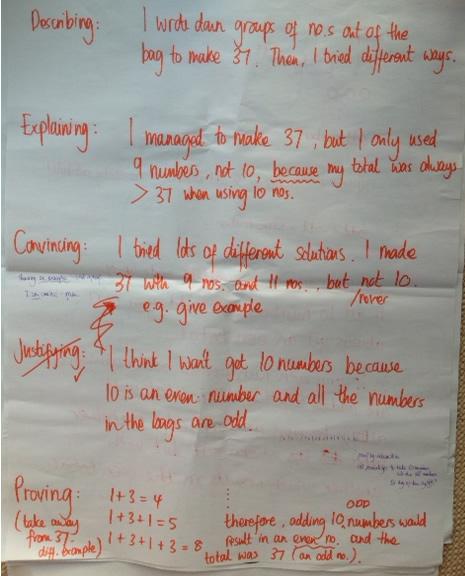 Describing: I wrote down groups of no.s out of the
bag to make 37. Then, I tried different ways.
Explaining: I managed to make 37, but I only used
9 numbers, not 10, because my total was always
> 37 when using 10 nos.
Convincing: I tried lots of different solutions. I made
37 with 9 nos. and 11 nos., but not 10.
/never
e.g. give example
Justifying: I think I won't get 10 numbers because
10 is an even number and all the numbers
in the bags are odd.
Proving:
(take away
from 37-
diff. example)
1+3=4
1+3+1=5
1+3+1+3=8
ODD
therefore, adding 10 numbers would
result in an even no. and the
total was 37 (an odd no.).